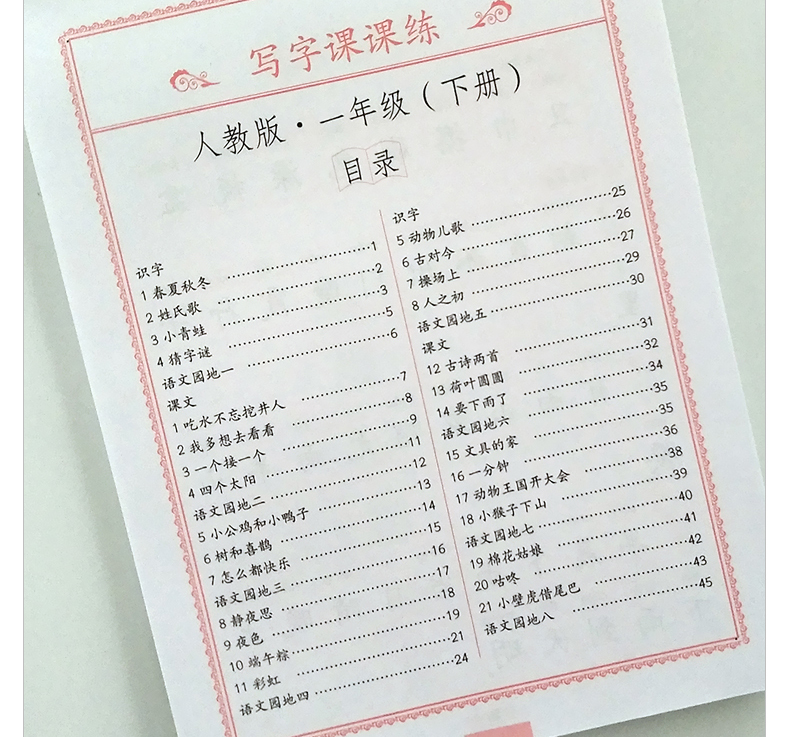 写字课课练
人教版·一年级（下册）
目录
识字
1 春夏秋冬 ⋯⋯ 1
2 姓氏歌 ⋯⋯ 2
3 小青蛙 ⋯⋯ 3
4 猜字谜 ⋯⋯ 5
语文园地一 ⋯⋯ 6
课文
1 吃水不忘挖井人 ⋯⋯ 7
2 我多想去看看 ⋯⋯ 8
3 一个接一个 ⋯⋯ 9
4 四个太阳 ⋯⋯ 11
语文园地二 ⋯⋯ 12
5 小公鸡和小鸭子 ⋯⋯ 13
6 树和喜鹊 ⋯⋯ 14
7 怎么都快乐 ⋯⋯ 15
语文园地三 ⋯⋯ 16
8 静夜思 ⋯⋯ 17
9 夜色 ⋯⋯ 18
10 端午粽 ⋯⋯ 19
11 彩虹 ⋯⋯ 21
语文园地四 ⋯⋯ 24
识字
5 动物儿歌 ⋯⋯ 25
6 古对今 ⋯⋯ 26
7 操场上 ⋯⋯ 27
8 人之初 ⋯⋯ 29
语文园地五 ⋯⋯ 30
课文
12 古诗两首 ⋯⋯ 31
13 荷叶圆圆 ⋯⋯ 32
14 要下雨了 ⋯⋯ 34
语文园地六 ⋯⋯ 35
15 文具的家 ⋯⋯ 35
16 一分钟 ⋯⋯ 36
17 动物王国开大会 ⋯⋯ 38
18 小猴子下山 ⋯⋯ 39
语文园地七 ⋯⋯ 40
19 棉花姑娘 ⋯⋯ 41
20 咕咚 ⋯⋯ 42
21 小壁虎借尾巴 ⋯⋯ 43
语文园地八 ⋯⋯ 45